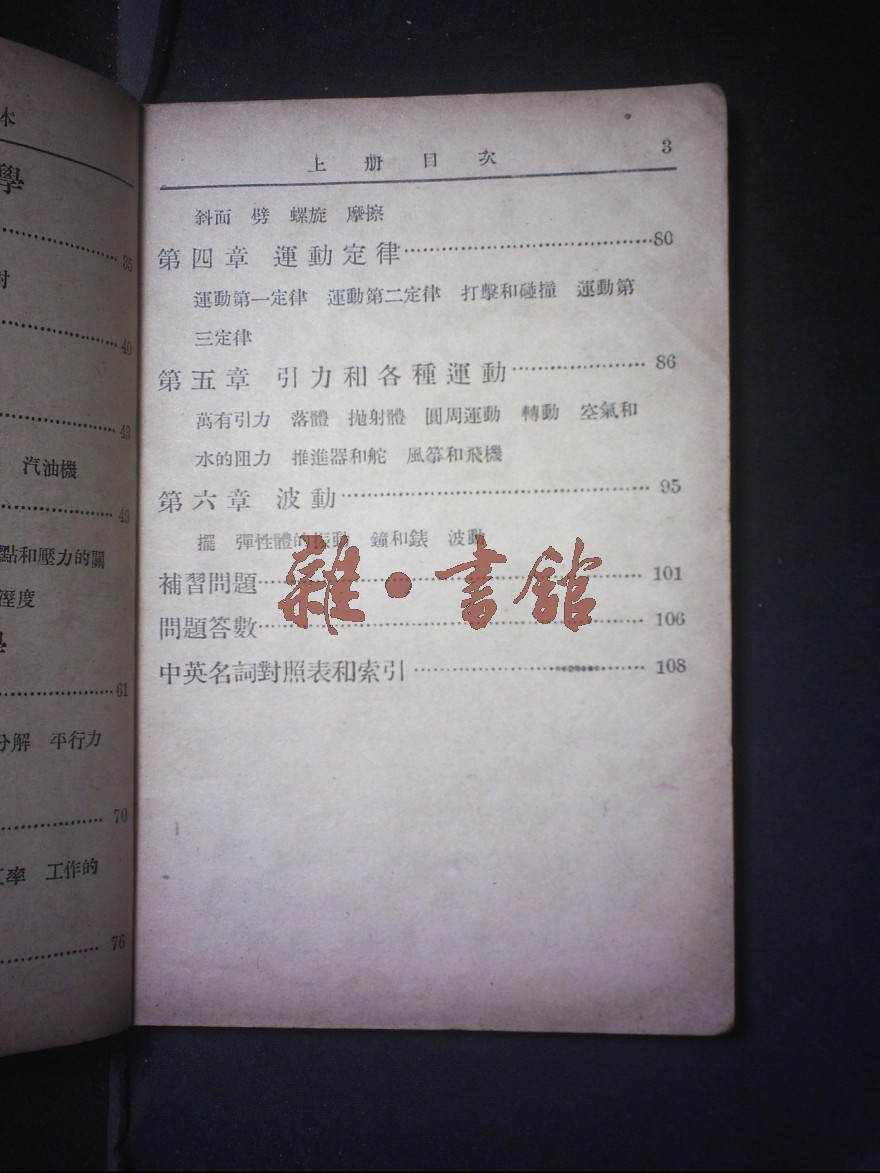 本
學
35
40
43
汽油機
49
點和壓力的關
溼度
61
分解　平行力
70
工作的
76
上册目次　3
斜面　劈　螺旋　摩擦
第四章　運動定律……80
運動第一定律　運動第二定律　打擊和碰撞　運動第
三定律
第五章　引力和各種運動……86
萬有引力　落體　拋射體　圓周運動　轉動　空氣和
水的阻力　推進器和舵　風箏和飛機
第六章　波動……95
擺　彈性體的振動　鐘和錶　波動
補習問題……101
問題答數……106
中英名詞對照表和索引……108
雜·書館